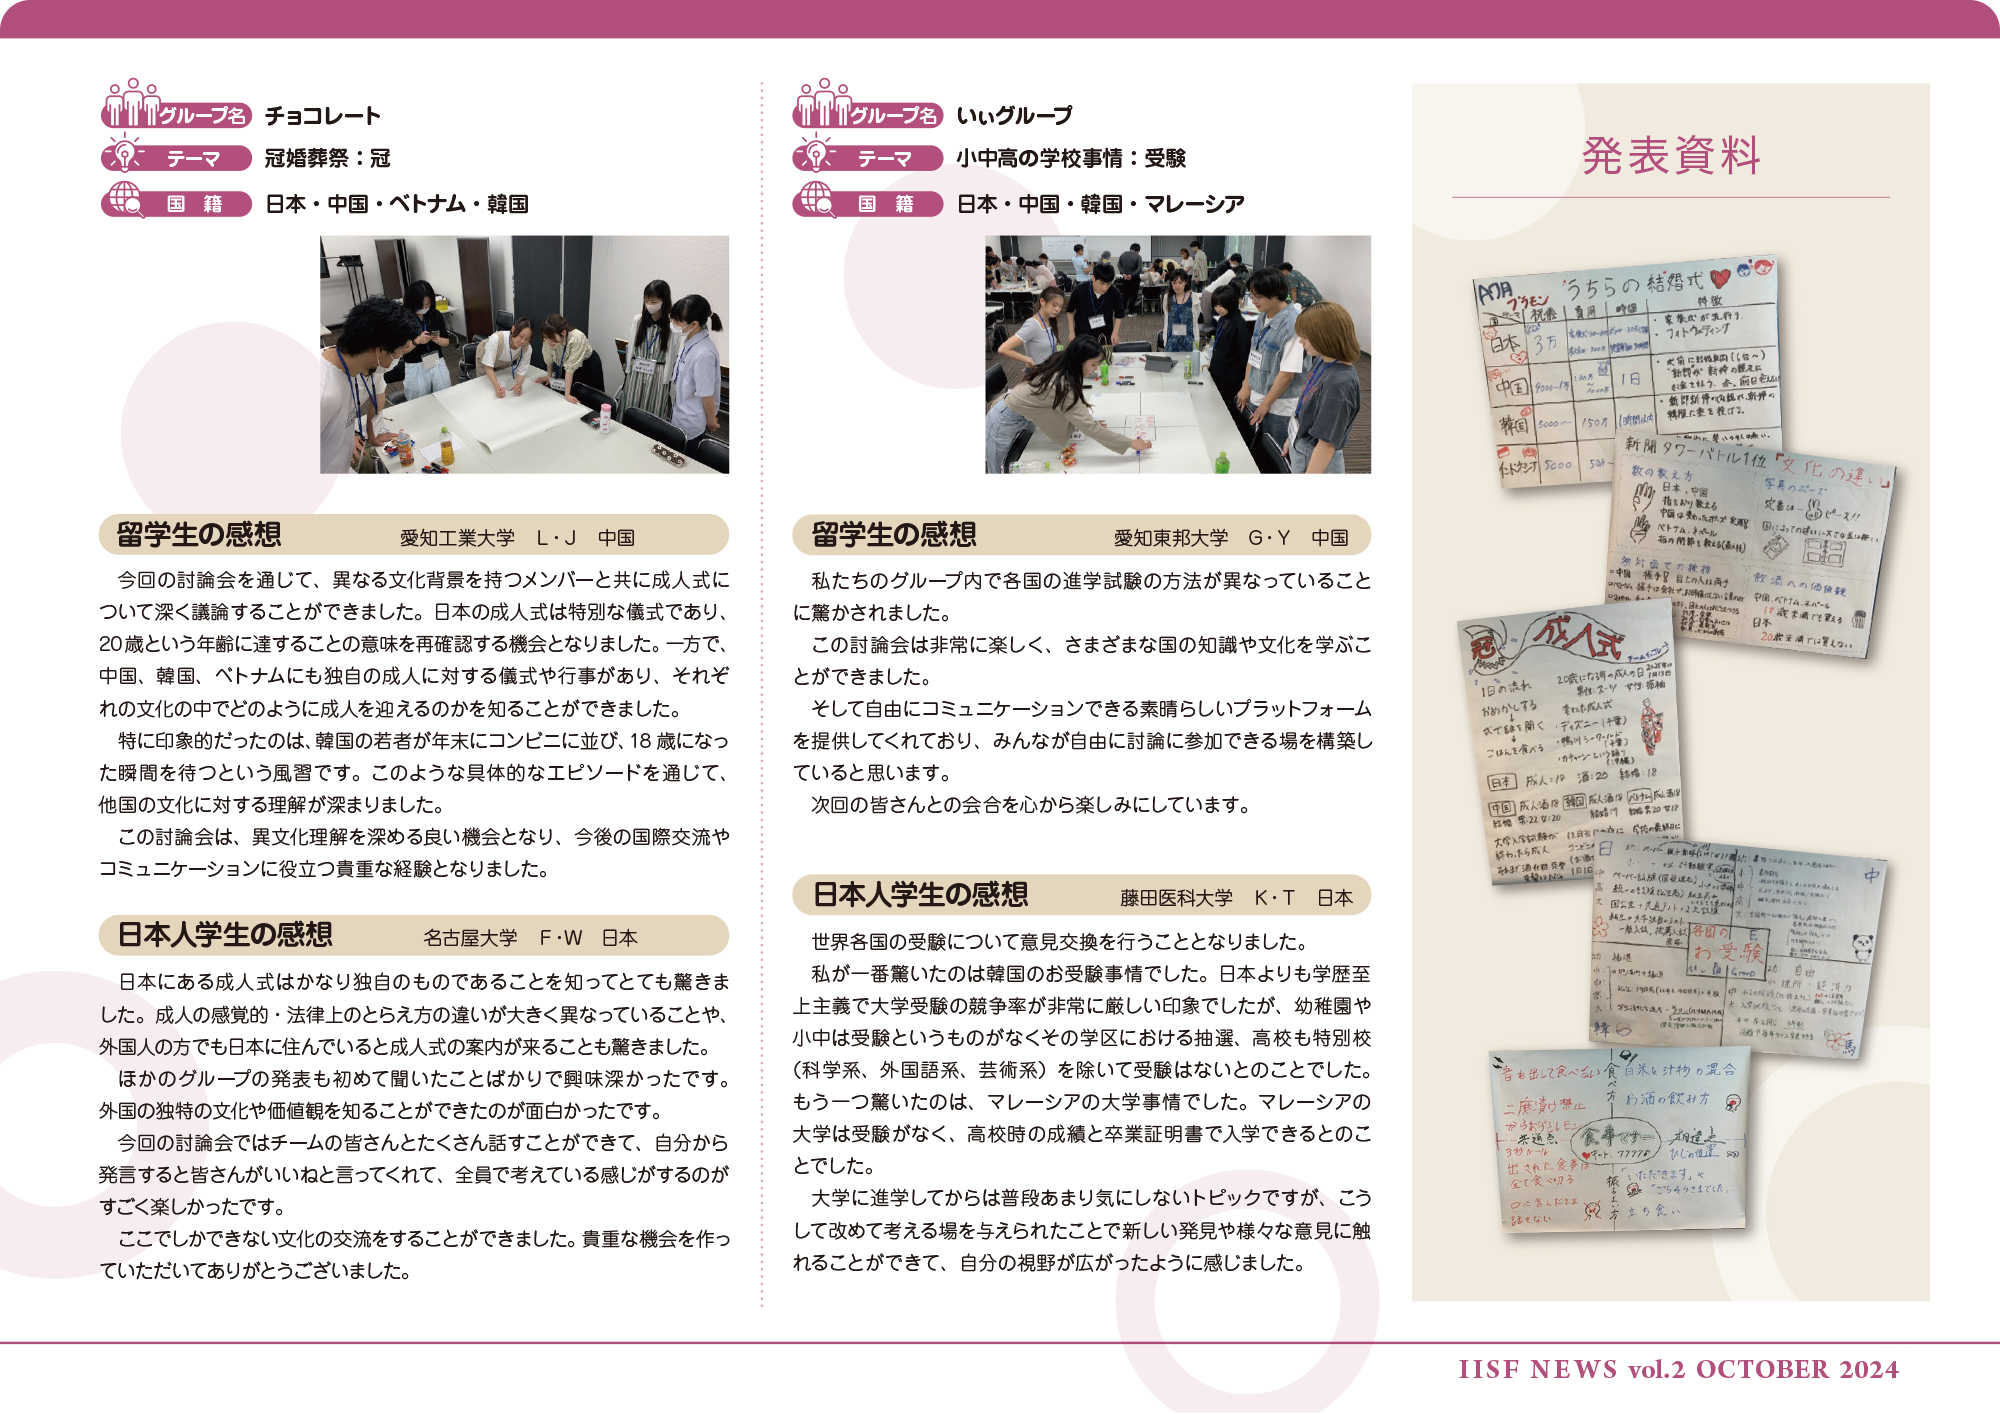 グループ名 チョコレート
テーマ 冠婚葬祭：冠
国籍 日本・中国・ベトナム・韓国
留学生の感想 愛知工業大学 L・J 中国
今回の討論会を通じて、異なる文化背景を持つメンバーと共に成人式に
ついて深く議論することができました。日本の成人式は特別な儀式であり、
20歳という年齢に達することの意味を再確認する機会となりました。一方で、
中国、韓国、ベトナムにも独自の成人に対する儀式や行事があり、それぞ
れの文化の中でどのように成人を迎えるのかを知ることができました。
特に印象的だったのは、韓国の若者が年末にコンビニに並び、18歳になっ
た瞬間を待つという風習です。このような具体的なエピソードを通じて、
他国の文化に対する理解が深まりました。
この討論会は、異文化理解を深める良い機会となり、今後の国際交流や
コミュニケーションに役立つ貴重な経験となりました。
日本人学生の感想 名古屋大学 F・W 日本
日本にある成人式はかなり独自のものであることを知ってとても驚きま
した。成人の感覚的・法律上のとらえ方の違いが大きく異なっていることや、
外国人の方でも日本に住んでいると成人式の案内が来ることも驚きました。
ほかのグループの発表も初めて聞いたことばかりで興味深かったです。
外国の独特の文化や価値観を知ることができたのが面白かったです。
今回の討論会ではチームの皆さんとたくさん話すことができて、自分から
発言すると皆さんがいいねと言ってくれて、全員で考えている感じがするのが
すごく楽しかったです。
ここでしかできない文化の交流をすることができました。貴重な機会を作っ
ていただいてありがとうございました。
グループ名 いぃグループ
テーマ 小中高の学校事情：受験
国籍 日本・中国・韓国・マレーシア
留学生の感想 愛知東邦大学 G・Y 中国
私たちのグループ内で各国の進学試験の方法が異なっていること
に驚かされました。
この討論会は非常に楽しく、さまざまな国の知識や文化を学ぶこ
とができました。
そして自由にコミュニケーションできる素晴らしいプラットフォーム
を提供してくれており、みんなが自由に討論に参加できる場を構築し
ていると思います。
次回の皆さんとの会合を心から楽しみにしています。
日本人学生の感想 藤田医科大学 K・T 日本
世界各国の受験について意見交換を行うこととなりました。
私が一番驚いたのは韓国のお受験事情でした。日本よりも学歴至
上主義で大学受験の競争率が非常に厳しい印象でしたが、幼稚園や
小中は受験というものがなくその学区における抽選、高校も特別校
（科学系、外国語系、芸術系）を除いて受験はないとのことでした。
もう一つ驚いたのは、マレーシアの大学事情でした。マレーシアの
大学は受験がなく、高校時の成績と卒業証明書で入学できるとのこ
とでした。
大学に進学してからは普段あまり気にしないトピックですが、こう
して改めて考える場を与えられたことで新しい発見や様々な意見に触
れることができて、自分の視野が広がったように感じました。
発表資料
うちらの結婚式
祝儀 費用 時間 特徴
日本 3万
フォトウェディング
中国 1日
韓国 5000〜 150万
5000
新聞タワーバトル1位 「文化の違い」
数の数え方
日本・中国
写真のポーズ
ベトナム、ネパール
初対面での挨拶
飲酒への価値観
中国、ベトナム、ネパール
18歳未満で買える
日本
20歳未満では買えない
冠 成人式
1日の流れ
おめかしする
ごはんを食べる
ディズニー(千葉)
日本 成人：18 酒：20 結婚：18
各国の
お受験
音を出して食べない 食べ方 白米と汁物の混合
お酒の飲み方
二度漬け禁止
共通点 食事マナー 相違点
3秒ルール
出された食事は
全て食べ切る
「いただきます」
「ごちそうさまでした」
立ち食い
IISF NEWS vol.2 OCTOBER 2024